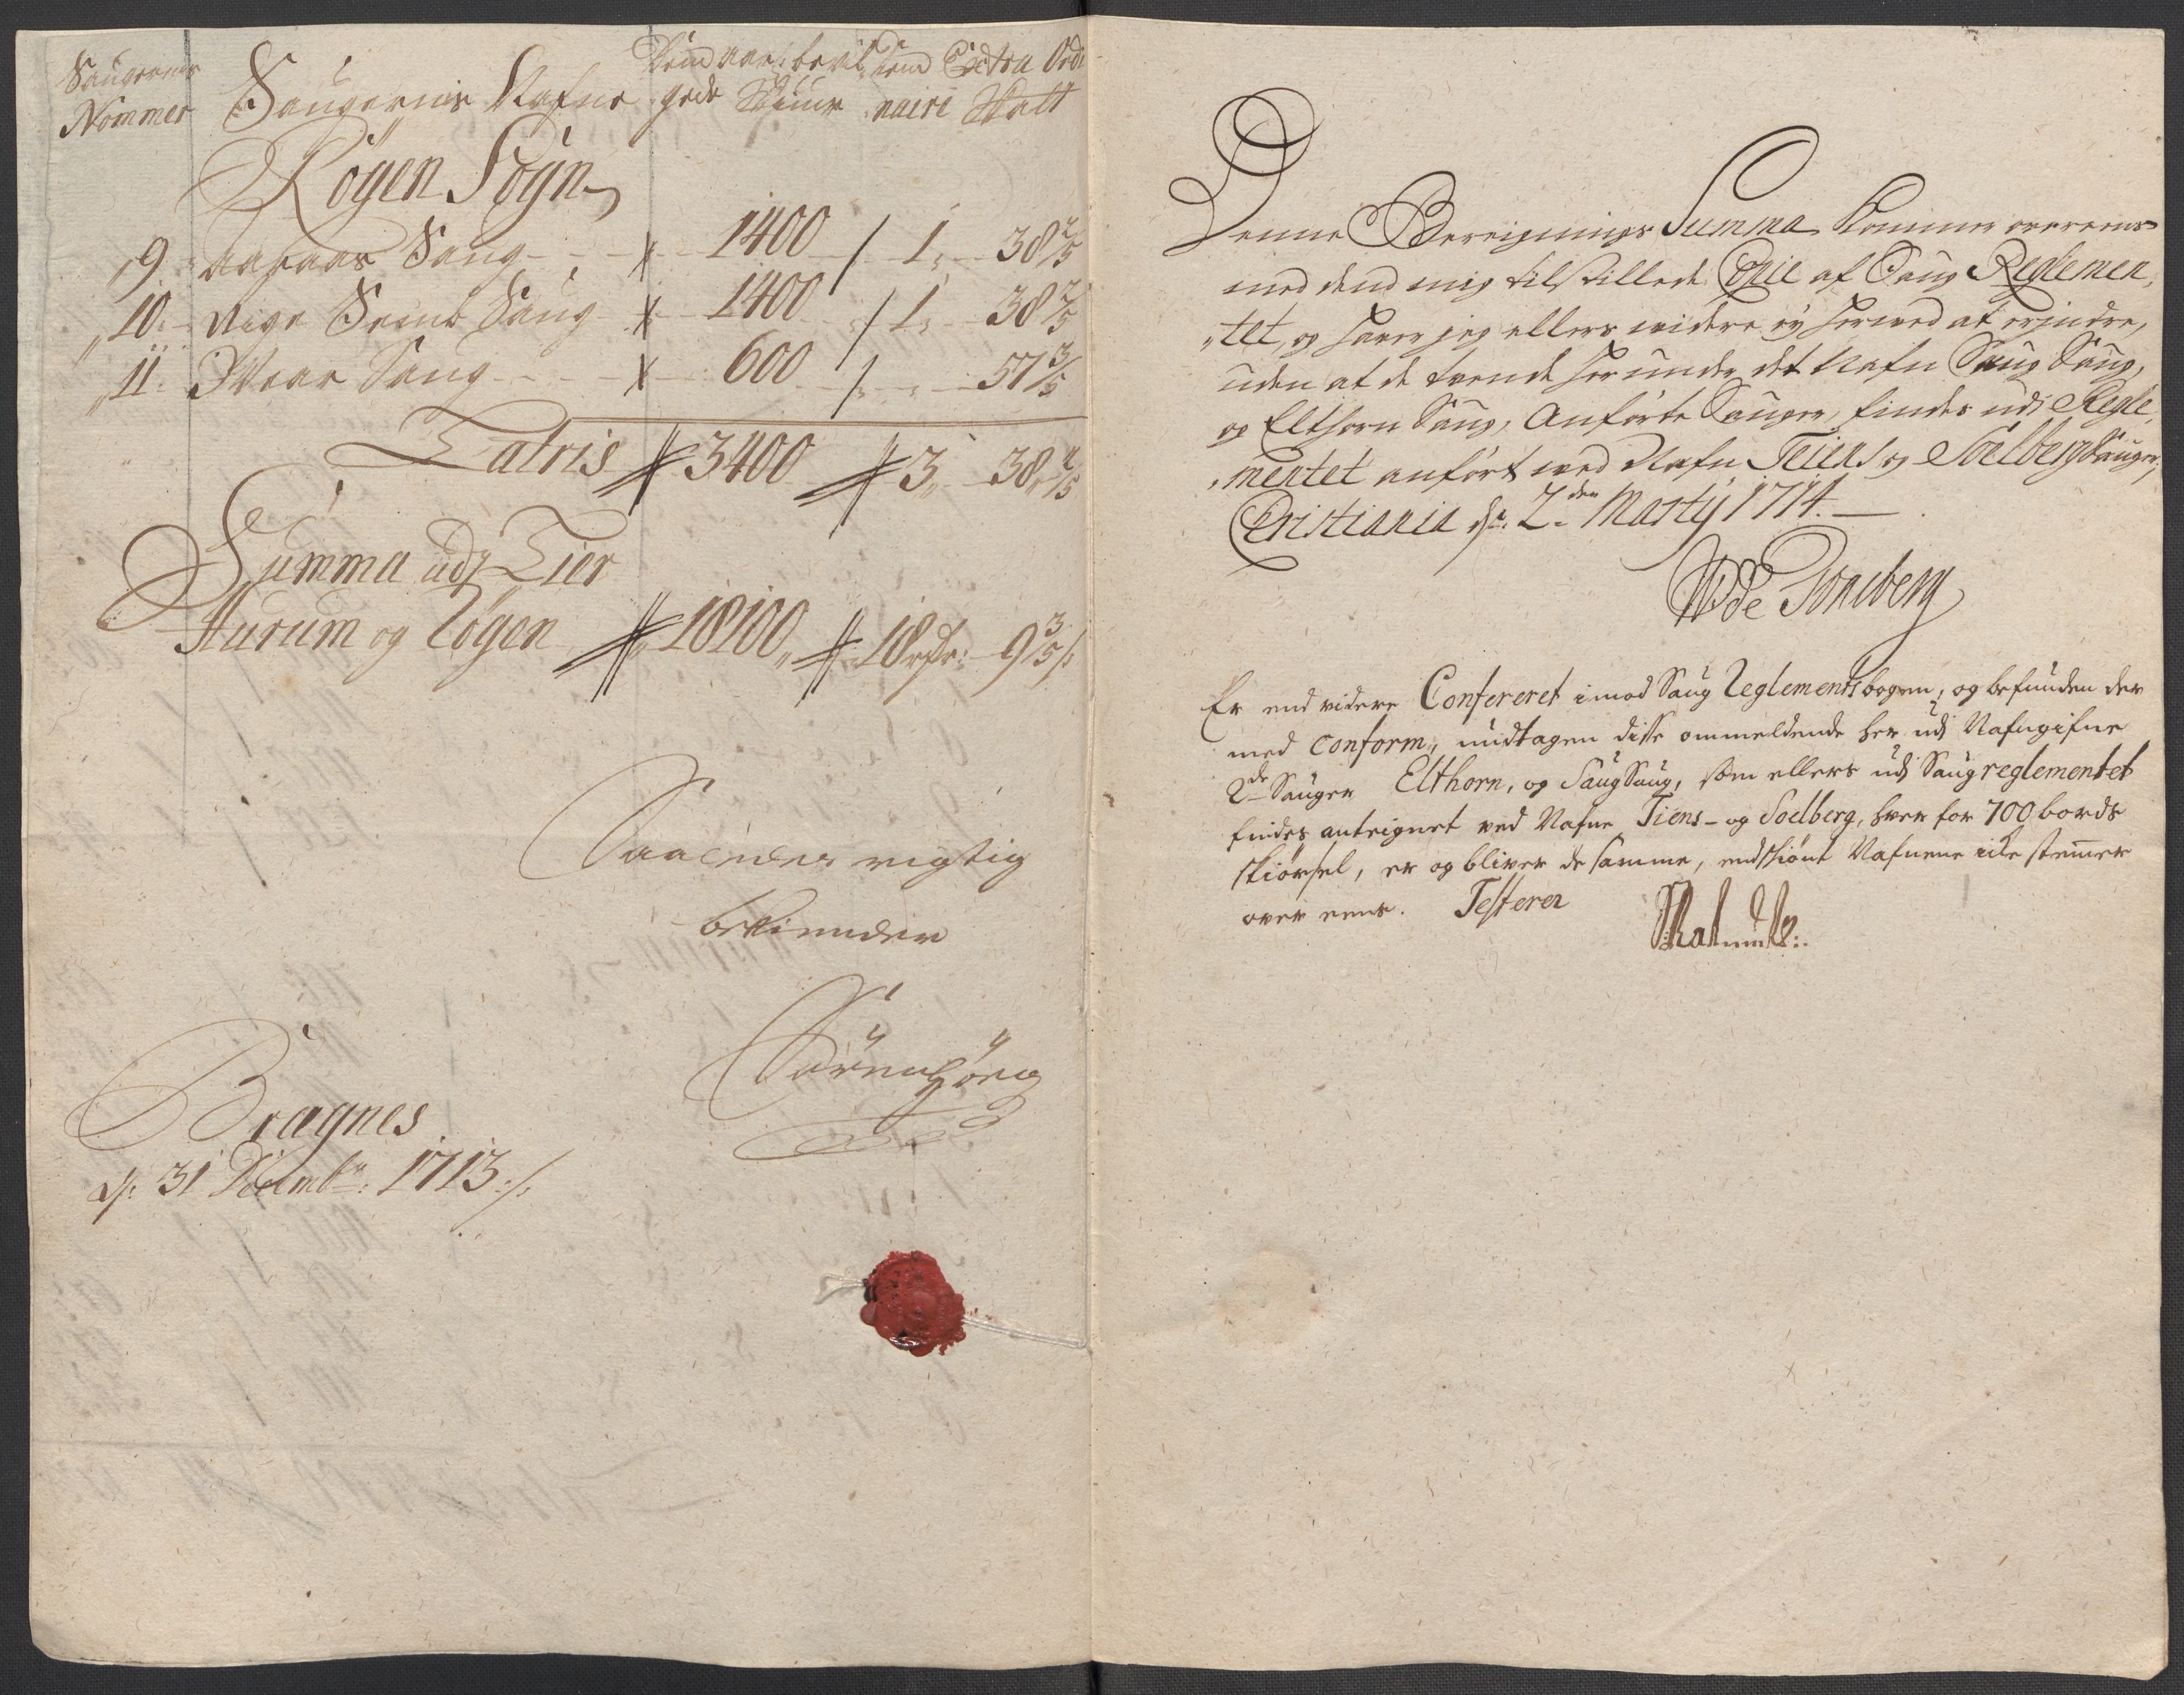 Saugernis
Nommer
Saugernis Nafne
gede Skiur
Extra Ordi
naire Skatt
Røgen Sogn
9 Aaraas Saug 1400 1 38 2/5
10 Nige Saug 1400 1 38 2/5
11 Saug 600 57 3/5
Latris 3400 3 38 2/5
Summa udj Lier
Hurum og Røgen 18100 18 rdr: 9 3/5 s
Saaledes rigtig
bekiender
Sören
Bragnes
dj: 31 Decembr: 1713
Denne Beregnings Summa kommer overeens
med dend mig tilstillede Copie af Saug Reglemen
tet, og haver jeg ellers videre ey herved at erindre,
uden at de tvende herunder det Nafn Saug Saug,
og Elthorn Saug, Anførte Sauger, findes udj Regle
mentet anført ved Nafn Tiens og Soelberg Sauger,
Cristiania dj: 2den Martij 1714.
de Tonsberg
Er end videre Confereret imod Saug Reglements bogen, og befunden der
med conform, undtagen disse ommeldende her udj Nafngifne
2de Sauger Elthorn, og Saug Saug, som ellers udj Saug reglementet
findes anteignet ved Nafne Tiens- og Soelberg, hver for 700 bords
skiørsel, er og bliver de samme, endskiønt Nafnene icke stemmer
over eens. Testerer